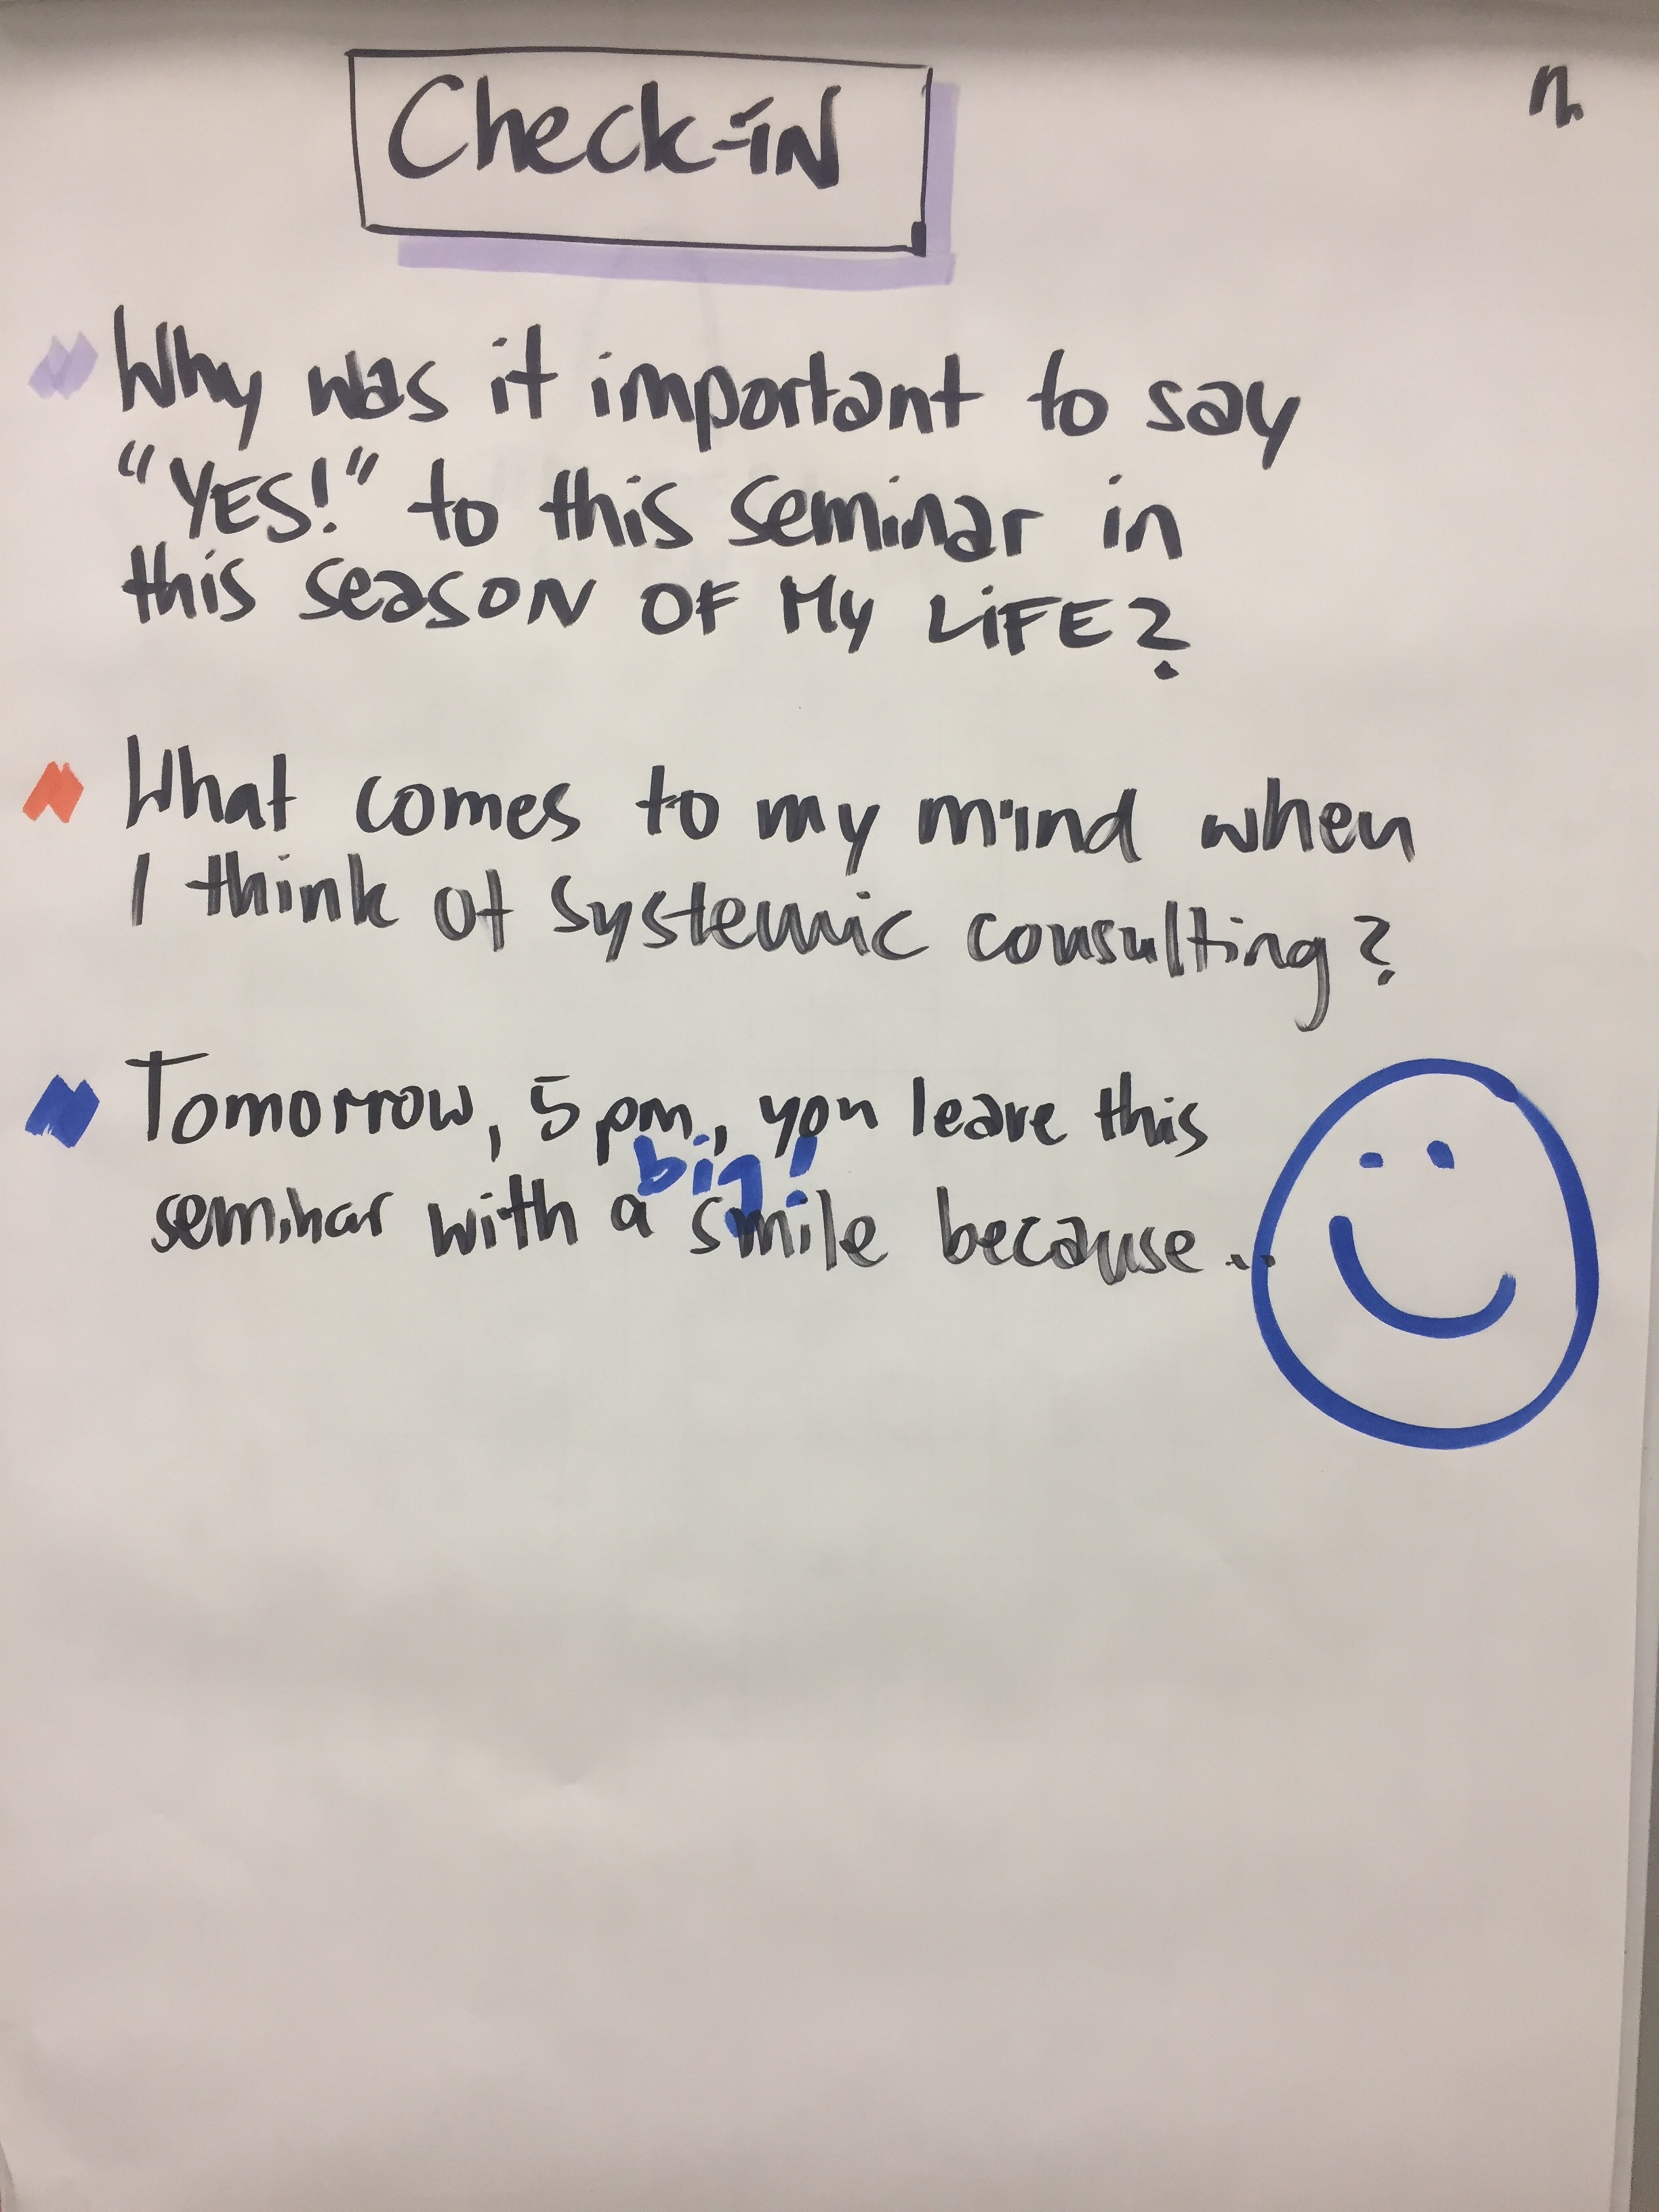 Check-iN
Why was it important to say
"YES!" to this seminar in
this season OF My LiFE?
What comes to my mind when
I think of systemic consulting?
Tomorrow, 5 pm, you leave this
big!
seminar with a smile because...